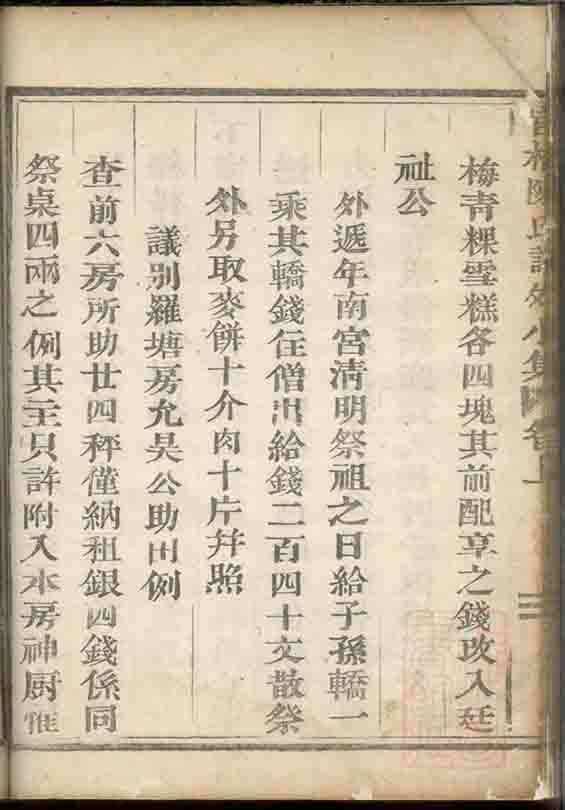 梅青粿雪糕各四塊其前配享之錢改入廷
祉公
外遞年南宮淸明祭祖之日給子孫轎一
乘其轎錢住僧出給錢二百四十文散祭
外另取麥餅十介肉十斤幷照
議别羅塘房允昊公助田例
查前六房所助廿四秤僅納租銀四錢係同
祭桌四兩之例其主只許附入本房神厨雅
陳氏譜外小集 卷上